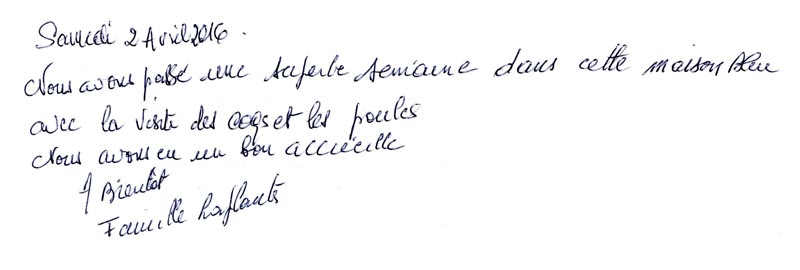 Samedi 2 Avril 2016.
Nous avons passé une superbe semaine dans cette maison Bleu
avec la visite des coqs et les poules
Nous avons eu un bon accueille
A Bientôt
Famille